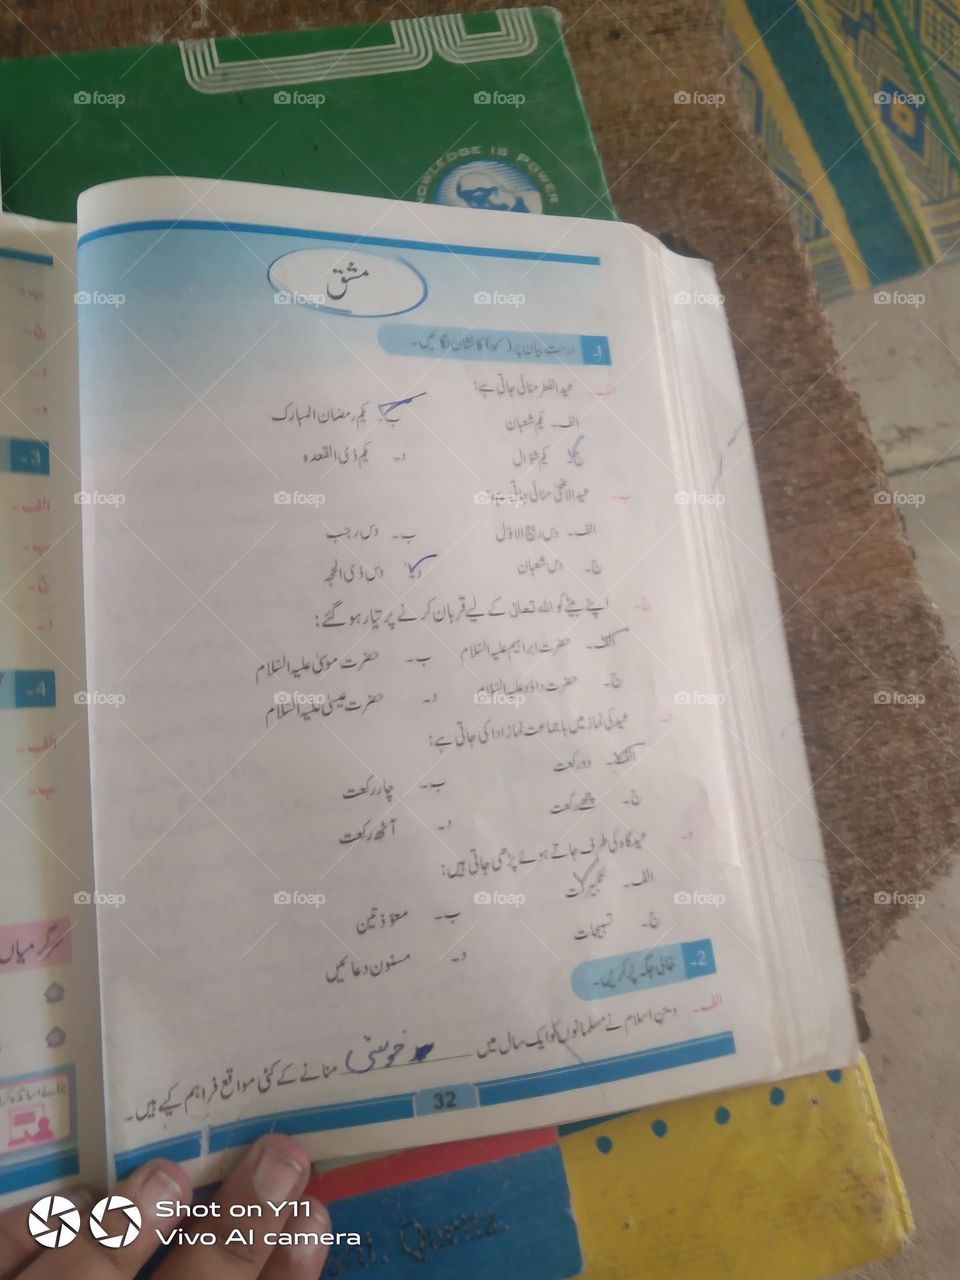 KNOWLEDGE IS POWER
مشق
1۔ درست بیان پر (✓) کا نشان لگائیں۔
الف۔ عید الفطر منائی جاتی ہے:
الف۔ یکم شعبان ب۔ یکم رمضان المبارک
ج۔ یکم شوال د۔ یکم ذی القعدہ
ب۔ عید الاضحیٰ منائی جاتی ہے:
الف۔ دس ربیع الاوّل ب۔ دس رجب
ج۔ دس شعبان د۔ دس ذی الحجہ
ج۔ اپنے بیٹے کو اللہ تعالیٰ کے لیے قربان کرنے پر تیار ہو گئے:
الف۔ حضرت ابراہیم علیہ السّلام ب۔ حضرت موسیٰ علیہ السّلام
ج۔ حضرت داؤد علیہ السّلام د۔ حضرت عیسیٰ علیہ السّلام
د۔ عید کی نماز میں با جماعت نماز ادا کی جاتی ہے:
الف۔ دو رکعت ب۔ چار رکعت
ج۔ چھے رکعت د۔ آٹھ رکعت
ہ۔ عید گاہ کی طرف جاتے ہوئے پڑھی جاتی ہیں:
الف۔ تکبیرات ب۔ معوّذتین
ج۔ تسبیحات د۔ مسنون دعائیں
2۔ خالی جگہ پُر کریں۔
الف۔ دین اسلام نے مسلمانوں کو ایک سال میں خوشی منانے کے کئی مواقع فراہم کیے ہیں۔
32
3۔
الف۔
ب۔
ج۔
د۔
4۔
الف۔
ب۔
سرگرمیاں
Quetta.
Shot on Y11
Vivo AI camera
foap